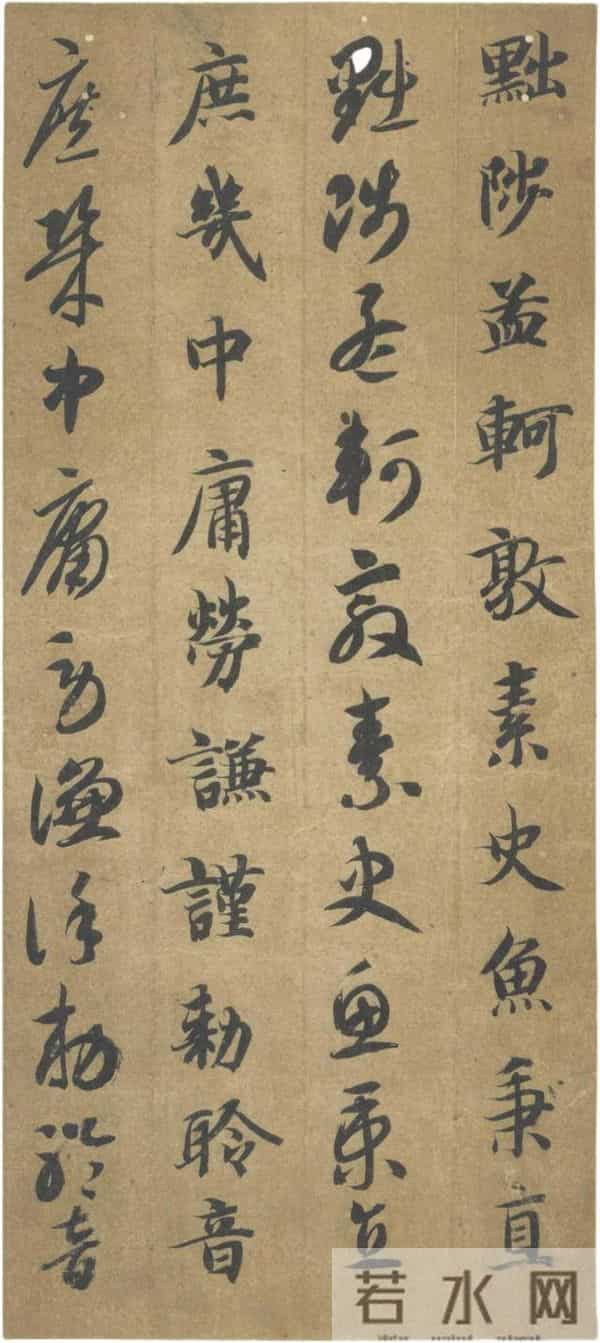 黜陟孟軻敦素史魚秉直
黜陟孟軻敦素史魚秉直
庶幾中庸勞謙謹勑聆音
庶幾中庸勞謙謹勑聆音
若水网